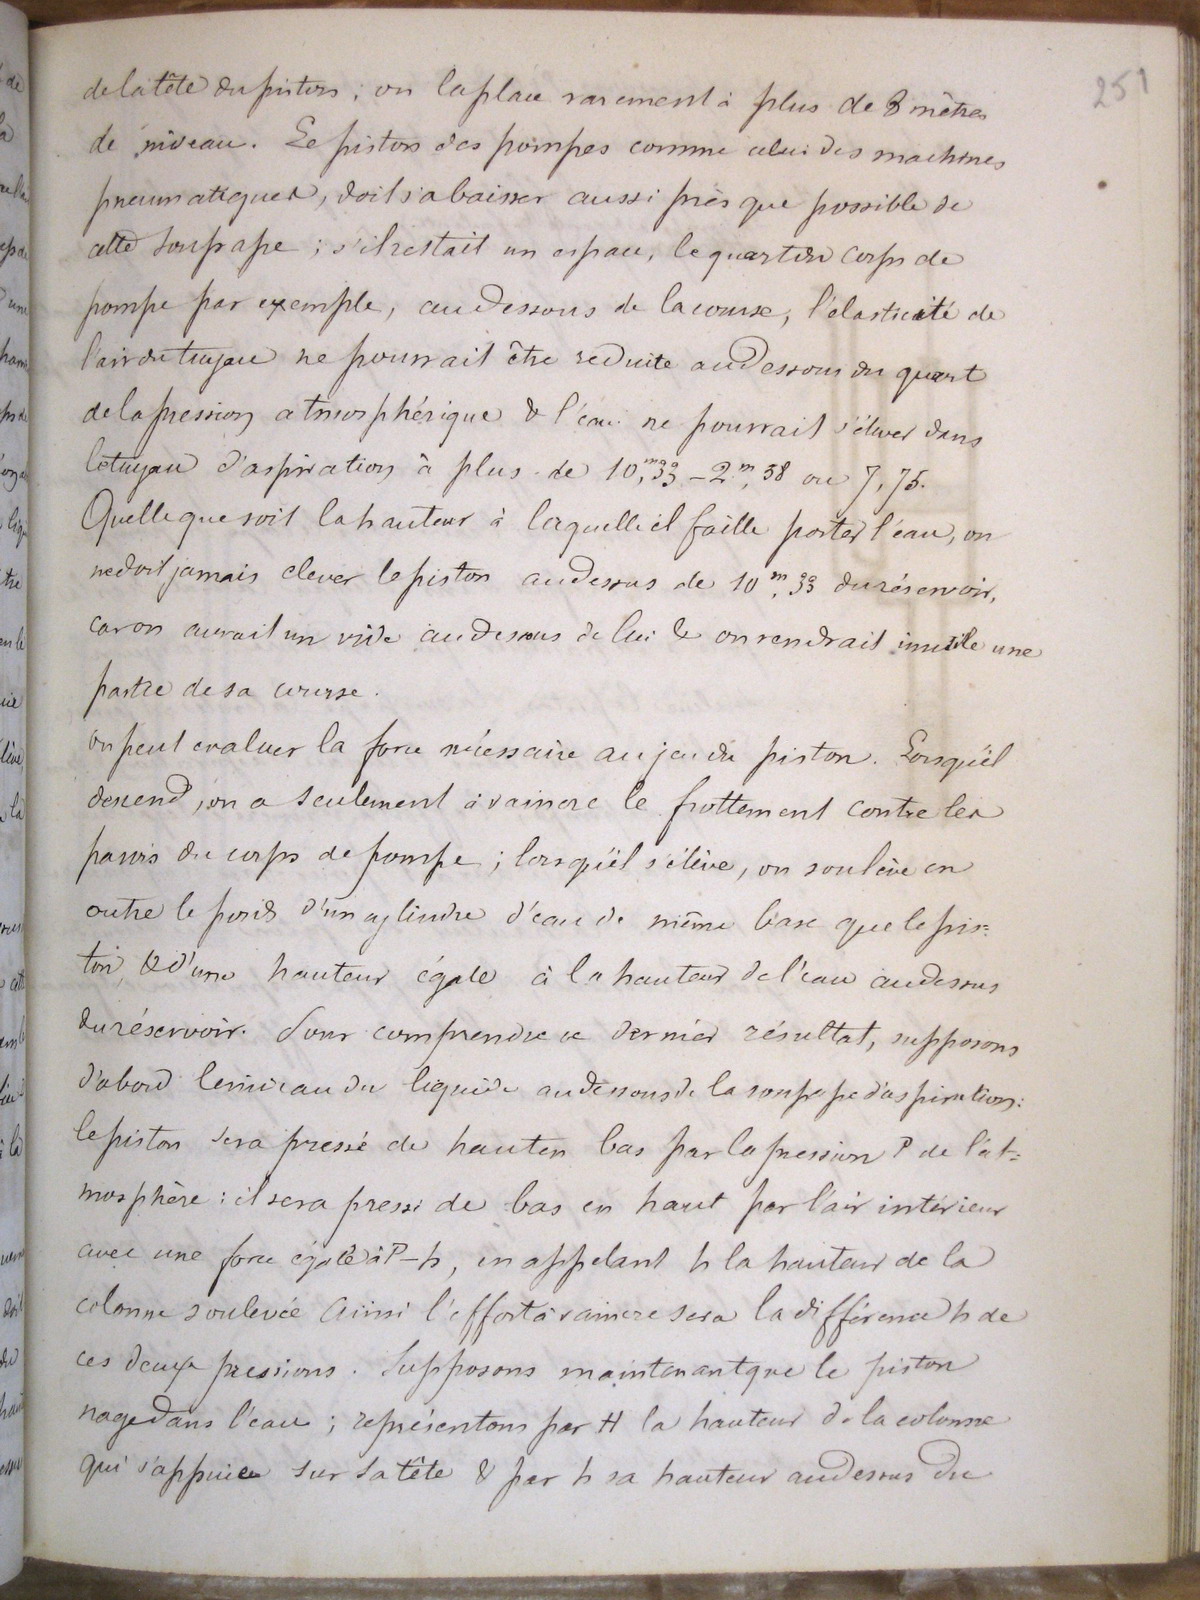 251
de la tête du piston ; on la place rarement à plus de 8 mètres
de niveau. Le piston des pompes comme celui des machines
pneumatiques, doit s'abaisser aussi près que possible de
cette soupape ; s'il restait un espace, le quart du corps de
pompe par exemple, au dessous de la course, l'élasticité de
l'air du tuyau ne pourrait être réduite au dessous du quart
de la pression atmosphérique & l'eau ne pourrait s'élever dans
le tuyau d'aspiration à plus de 10,ᵐ33 – 2ᵐ,58 ou 7,75.
Quelle que soit la hauteur à laquelle il faille porter l'eau, on
ne doit jamais élever le piston au dessus de 10ᵐ,33 du réservoir,
car on aurait un vide au dessous de lui & on rendrait inutile une
partie de sa course.
On peut évaluer la force nécessaire au jeu du piston. Lorsqu'il
descend, on a seulement à vaincre le frottement contre les
parois du corps de pompe ; lorsqu'il s'élève, on soulève en
outre le poids d'un cylindre d'eau de même base que le pis=
ton, & d'une hauteur égale à la hauteur de l'eau au dessus
du réservoir. Pour comprendre ce dernier résultat, supposons
d'abord le niveau du liquide au dessous de la soupape d'aspiration :
le piston sera pressé de haut en bas par la pression P de l'at=
mosphère : il sera pressé de bas en haut par l'air intérieur
avec une force égale à P–h, en appelant h la hauteur de la
colonne soulevée Ainsi l'effort à vaincre sera la différence h de
ces deux pressions. Supposons maintenant que le piston
nage dans l'eau ; représentons par H la hauteur de la colonne
qui s'appuie sur sa tête & par h sa hauteur au dessus du